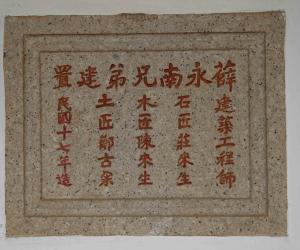 薛永南兄弟建置
建築工程師
石匠莊來生
木匠陳來生
土匠鄭古梁
民國十七年造